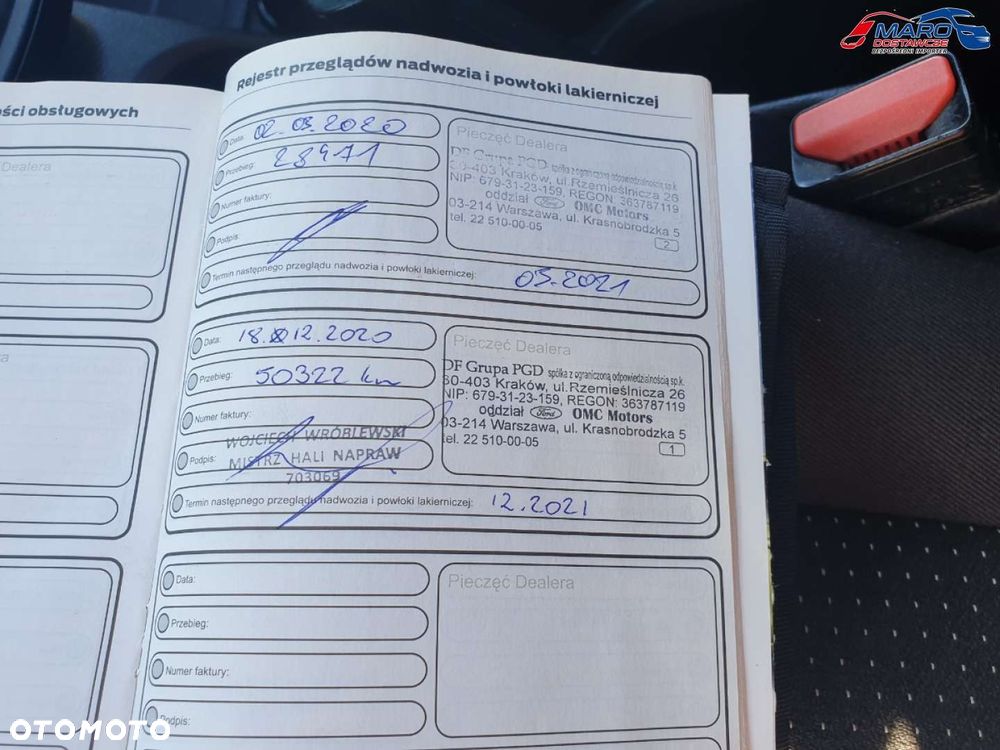 MARO
DOSTAWCZE
BEZPOŚREDNI IMPORTER
ości obsługowych
Dealera
Rejestr przeglądów nadwozia i powłoki lakierniczej
Data: 02.03.2020
Przebieg: 28471
Numer faktury:
Podpis:
Pieczęć Dealera
DF Grupa PGD spółka z ograniczoną odpowiedzialnością sp.k.
30-403 Kraków, ul.Rzemieślnicza 26
NIP: 679-31-23-159, REGON: 363787119
oddział Ford OMC Motors
03-214 Warszawa, ul. Krasnobrodzka 5
tel. 22 510-00-05
2
Termin następnego przeglądu nadwozia i powłoki lakierniczej: 03.2021
Data: 18.12.2020
Przebieg: 50322 km
Numer faktury:
Podpis:
WOJCIECH WRÓBLEWSKI
MISTRZ HALI NAPRAW
703069
Pieczęć Dealera
DF Grupa PGD spółka z ograniczoną odpowiedzialnością sp.k.
30-403 Kraków, ul.Rzemieślnicza 26
NIP: 679-31-23-159, REGON: 363787119
oddział Ford OMC Motors
03-214 Warszawa, ul. Krasnobrodzka 5
tel. 22 510-00-05
1
Termin następnego przeglądu nadwozia i powłoki lakierniczej: 12.2021
Data:
Przebieg:
Numer faktury:
Podpis:
Pieczęć Dealera
OTOMOTO